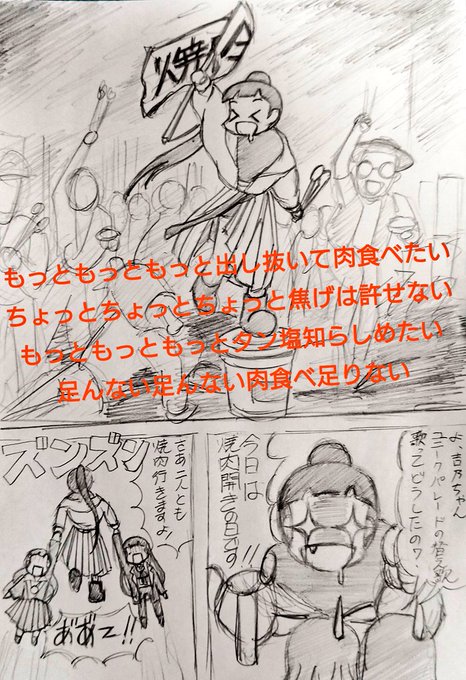 もっともっともっと出し抜いて肉食べたい
ちょっとちょっとちょっと焦げは許せない
もっともっともっとタン塩知らしめたい
足んない足んない肉食べ足りない
よ、吉乃ちゃん
ユニークパレードの替え歌
歌ってどうしたの?
今日は
焼肉開きの日です!!
さあ二人とも
焼肉行きますよ!
ズンズン